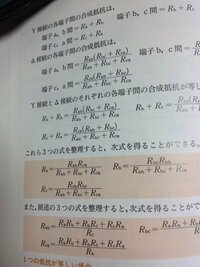 Y接続の各端子間の合成抵抗は,
端子a, b間 = Ra + Rb 端子b, c間 = Rb + Rc
端子c, a間 = Rc + Ra
Δ接続の各端子間の合成抵抗は,
端子a, b間 = Rab(Rbc + Rca) / Rab + Rbc + Rca
端子b, c間 = Rbc(
端子c, a間 = Rca(Rab + Rbc) / Rab + Rbc + Rca
Y接続とΔ接続のそれぞれの各端子間の合成抵抗が等し
Ra + Rb = Rab(Rbc + Rca) / Rab + Rbc + Rca Rb + Rc =
Rc + Ra = Rca(Rab + Rbc) / Rab + Rbc + Rca
これら3つの式を整理すると, 次式を得ることができる。
Ra = RabRca / Rab + Rbc + Rca Rb = RbcRab / Rab + Rbc +
Rc = RcaRbc / Rab + Rbc + Rca
また, 前述の3つの式を整理すると, 次式を得ることがで
Rab = RaRb + RbRc + RcRa / Rc Rbc = RaRb +
Rca = RaRb + RbRc + RcRa / Rb
3つの抵抗が等しい場合